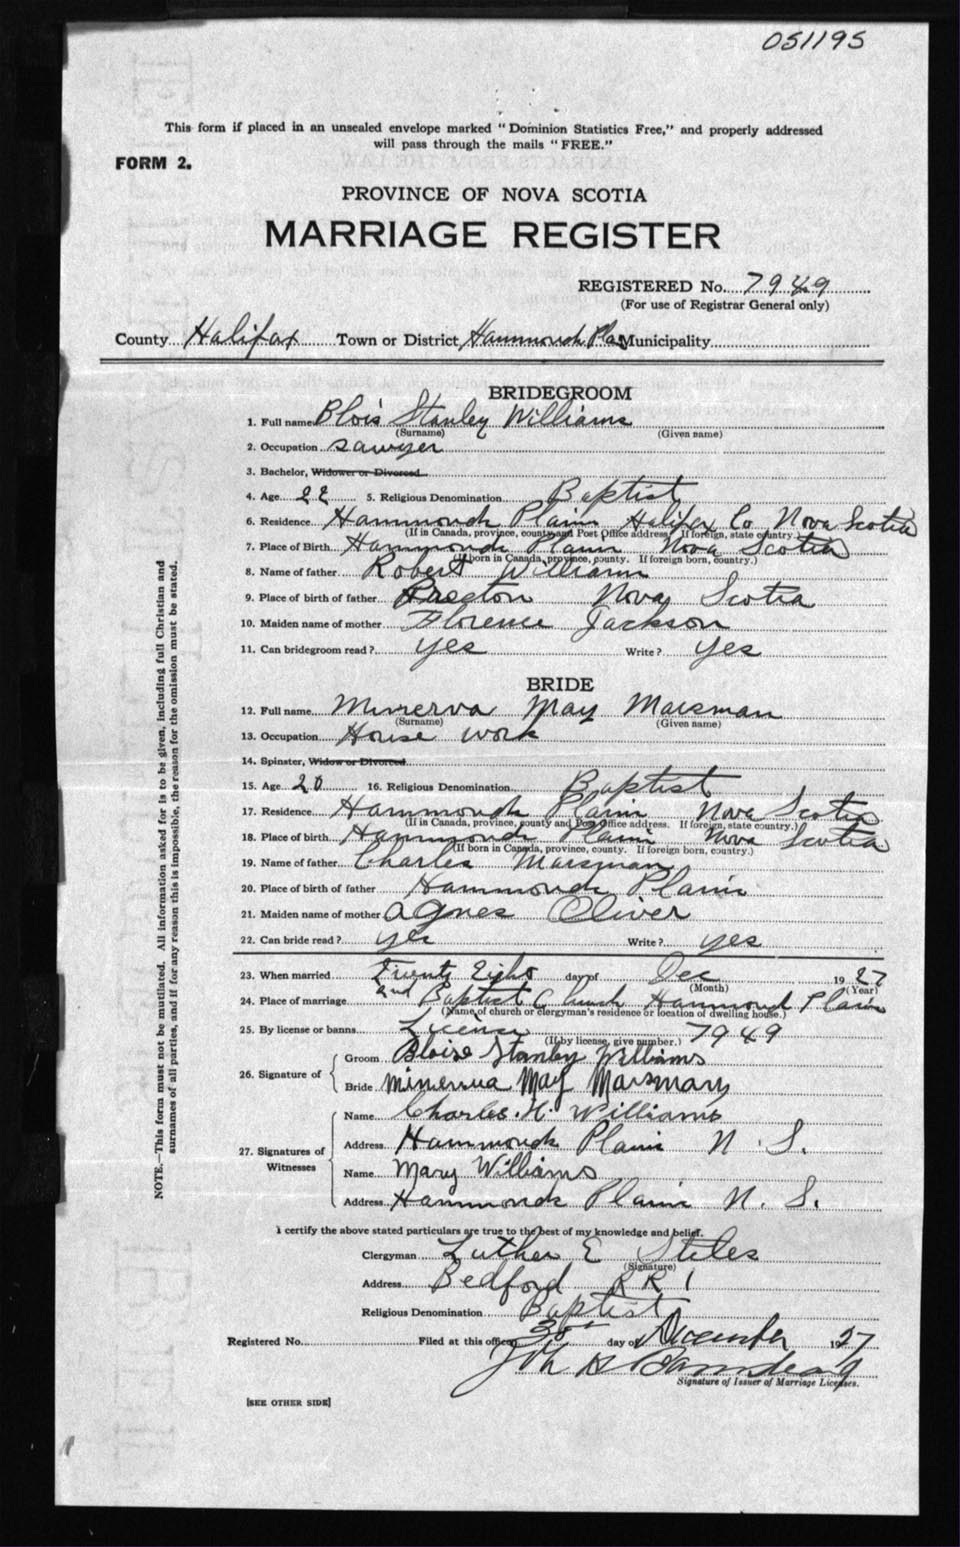 051195
This form if placed in an unsealed envelope marked "Dominion Statistics Free," and properly addressed
will pass through the mails "FREE."
FORM 2.
PROVINCE OF NOVA SCOTIA
MARRIAGE REGISTER
REGISTERED No. 7949
(For use of Registrar General only)
County Halifax Town or District Hammonds Plains Municipality
BRIDEGROOM
1. Full name Blois Stanley Williams
(Surname) (Given name)
2. Occupation sawyer
3. Bachelor, Widower or Divorced
4. Age 22 5. Religious Denomination Baptist
6. Residence Hammonds Plains Halifax Co Nova Scotia
(If in Canada, province, county and Post Office address. If foreign, state country.)
7. Place of Birth Hammonds Plains Nova Scotia
(If born in Canada, province, county. If foreign born, country.)
8. Name of father Robert Williams
9. Place of birth of father Preston Nova Scotia
10. Maiden name of mother Florence Jackson
11. Can bridegroom read? yes Write? yes
BRIDE
12. Full name Minerva May Marsman
(Surname) (Given name)
13. Occupation House work
14. Spinster, Widow or Divorced
15. Age 20 16. Religious Denomination Baptist
17. Residence Hammonds Plains Nova Scotia
(If in Canada, province, county and Post Office address. If foreign, state country.)
18. Place of birth Hammonds Plains Nova Scotia
(If born in Canada, province, county. If foreign born, country.)
19. Name of father Charles Marsman
20. Place of birth of father Hammonds Plains
21. Maiden name of mother Agnes Oliver
22. Can bride read? yes Write? yes
23. When married Twenty Eight day of Dec 1927
(Month) (Year)
24. Place of marriage 2nd Baptist Church Hammond Plains
(Name of church or clergyman's residence or location of dwelling house.)
25. By license or banns License 7949
(If by license, give number.)
26. Signature of Groom Bloise Stanley Williams
Bride Minerva May Marsman
27. Signatures of Witnesses Name Charles. H. Williams
Address Hammonds Plains N. S.
Name Mary Williams
Address Hammonds Plains N. S.
I certify the above stated particulars are true to the best of my knowledge and belief.
Clergyman Luther E Stiles
(Signature)
Address Bedford R R 1
Religious Denomination Baptist
Registered No. Filed at this office 30th day of December 1927
Signature of Issuer of Marriage Licenses.
[SEE OTHER SIDE]
NOTE.—This form must not be mutilated. All information asked for is to be given, including full Christian and
surnames of all parties, and if for any reason this is impossible, the reason for the omission must be stated.